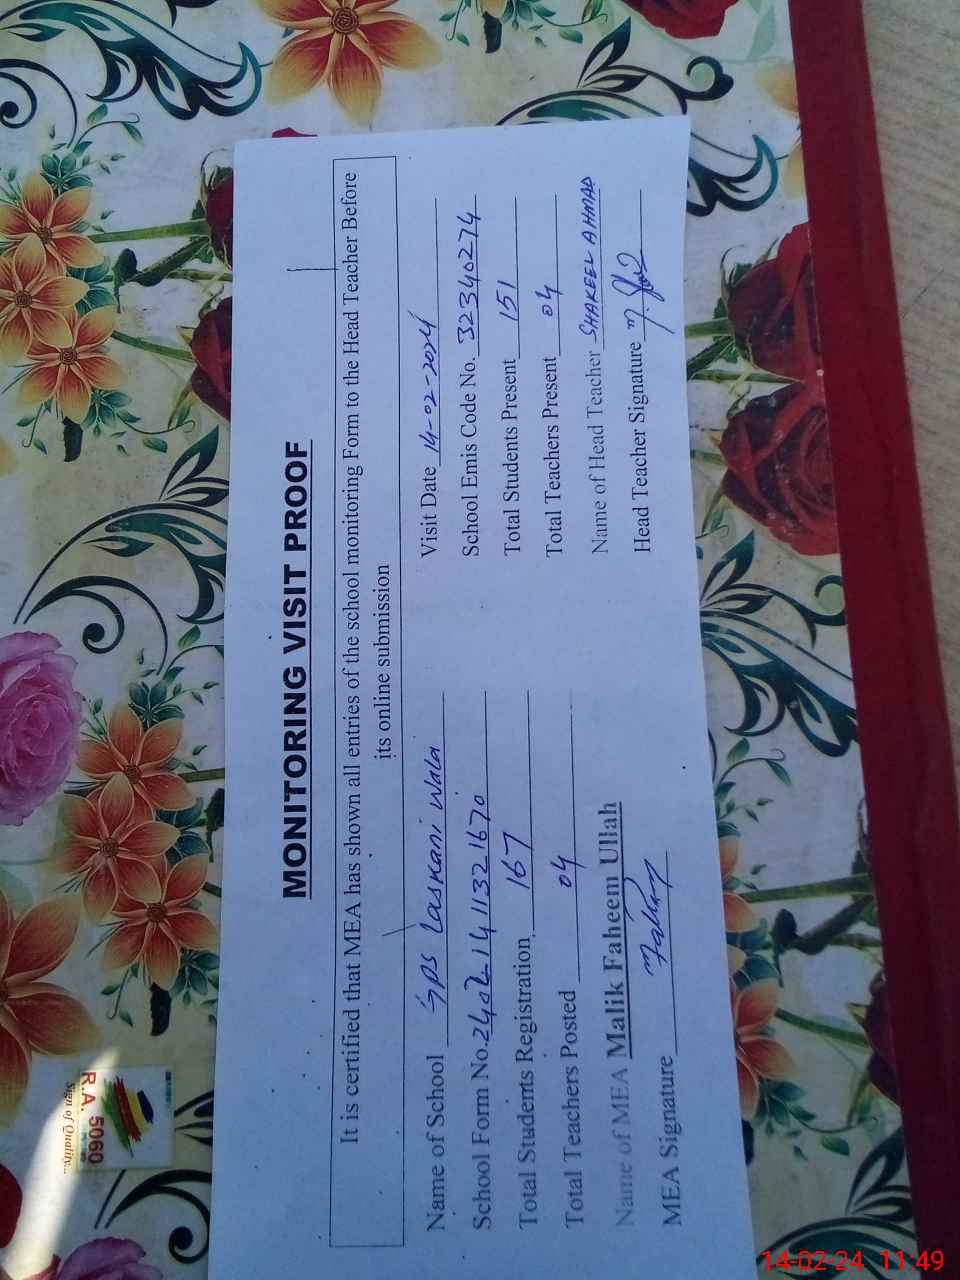 MONITORING VISIT PROOF
It is certified that MEA has shown all entries of the school monitoring Form to the Head Teacher Before
its online submission
Name of School GPS Laskani Wala
Visit Date 14-02-2024
School Form No. 2402-1411321670
School Emis Code No. 32340274
Total Students Registration 167
Total Students Present 151
Total Teachers Posted 04
Total Teachers Present 04
Name of MEA Malik Faheem Ullah
Name of Head Teacher SHAKEEL AHMAD
MEA Signature
Head Teacher Signature
R.A. 5060
Sign of Quality...
14-02-24 11:49